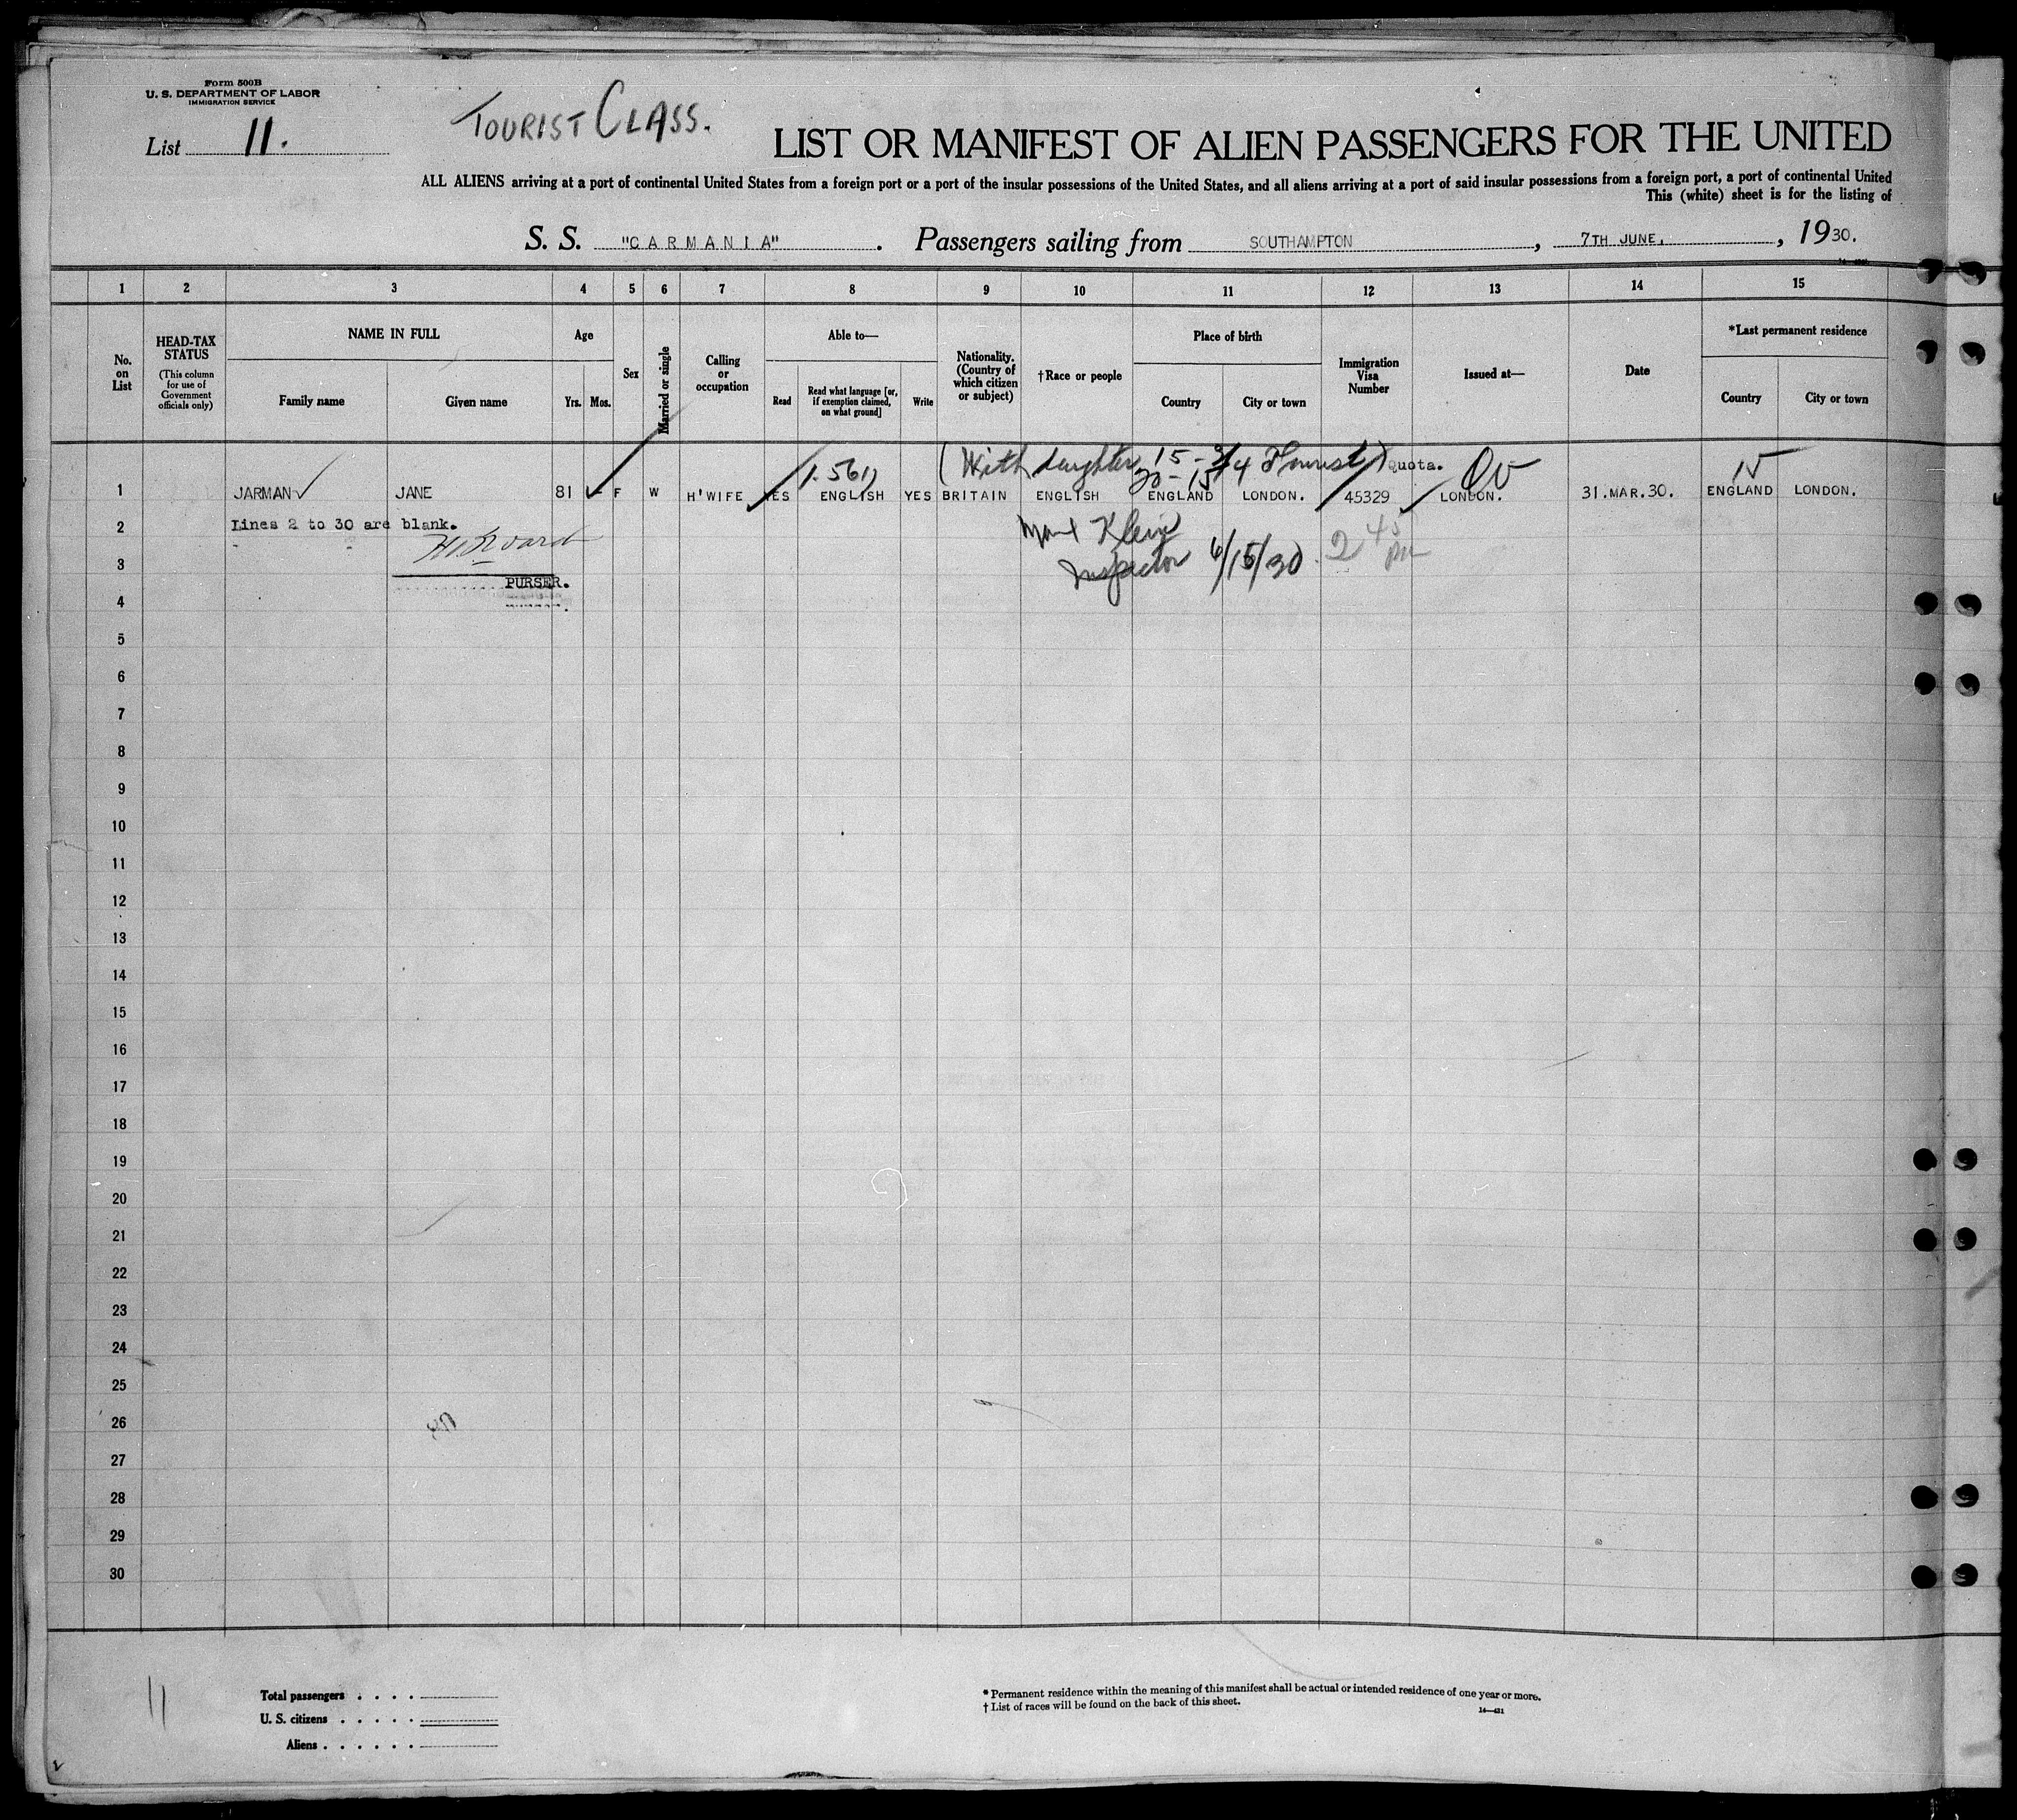 Form 500B
U. S. DEPARTMENT OF LABOR
IMMIGRATION SERVICE
List 11.
TOURIST CLASS.
LIST OR MANIFEST OF ALIEN PASSENGERS FOR THE UNITED
ALL ALIENS arriving at a port of continental United States from a foreign port or a port of the insular possessions of the United States, and all aliens arriving at a port of said insular possessions from a foreign port, a port of continental United
This (white) sheet is for the listing of
S. S. "CARMANIA". Passengers sailing from SOUTHAMPTON, 7TH JUNE., 1930.
1 2 3 4 5 6 7 8 9 10 11 12 13 14 15
No. on List
HEAD-TAX STATUS
(This column for use of Government officials only)
NAME IN FULL
Family name Given name
Age
Yrs. Mos.
Sex
Married or single
Calling or occupation
Able to—
Read
Read what language [or, if exemption claimed, on what ground]
Write
Nationality. (Country of which citizen or subject)
†Race or people
Place of birth
Country City or town
Immigration Visa Number
Issued at—
Date
*Last permanent residence
Country City or town
(With daughter 15 - 3/4 Tourist) Quota.
1 JARMAN JANE 81 F W H'WIFE YES ENGLISH YES BRITAIN ENGLISH ENGLAND LONDON. 45329 LONDON. 31.MAR.30. ENGLAND LONDON.
2 Lines 2 to 30 are blank.
Klein
3 Inspector 6/15/30 2 45 PM
PURSER.
4
5
6
7
8
9
10
11
12
13
14
15
16
17
18
19
20
21
22
23
24
25
26
27
28
29
30
11
Total passengers . . . .
U. S. citizens . . . . .
Aliens . . . . . .
* Permanent residence within the meaning of this manifest shall be actual or intended residence of one year or more.
† List of races will be found on the back of this sheet.
14—431